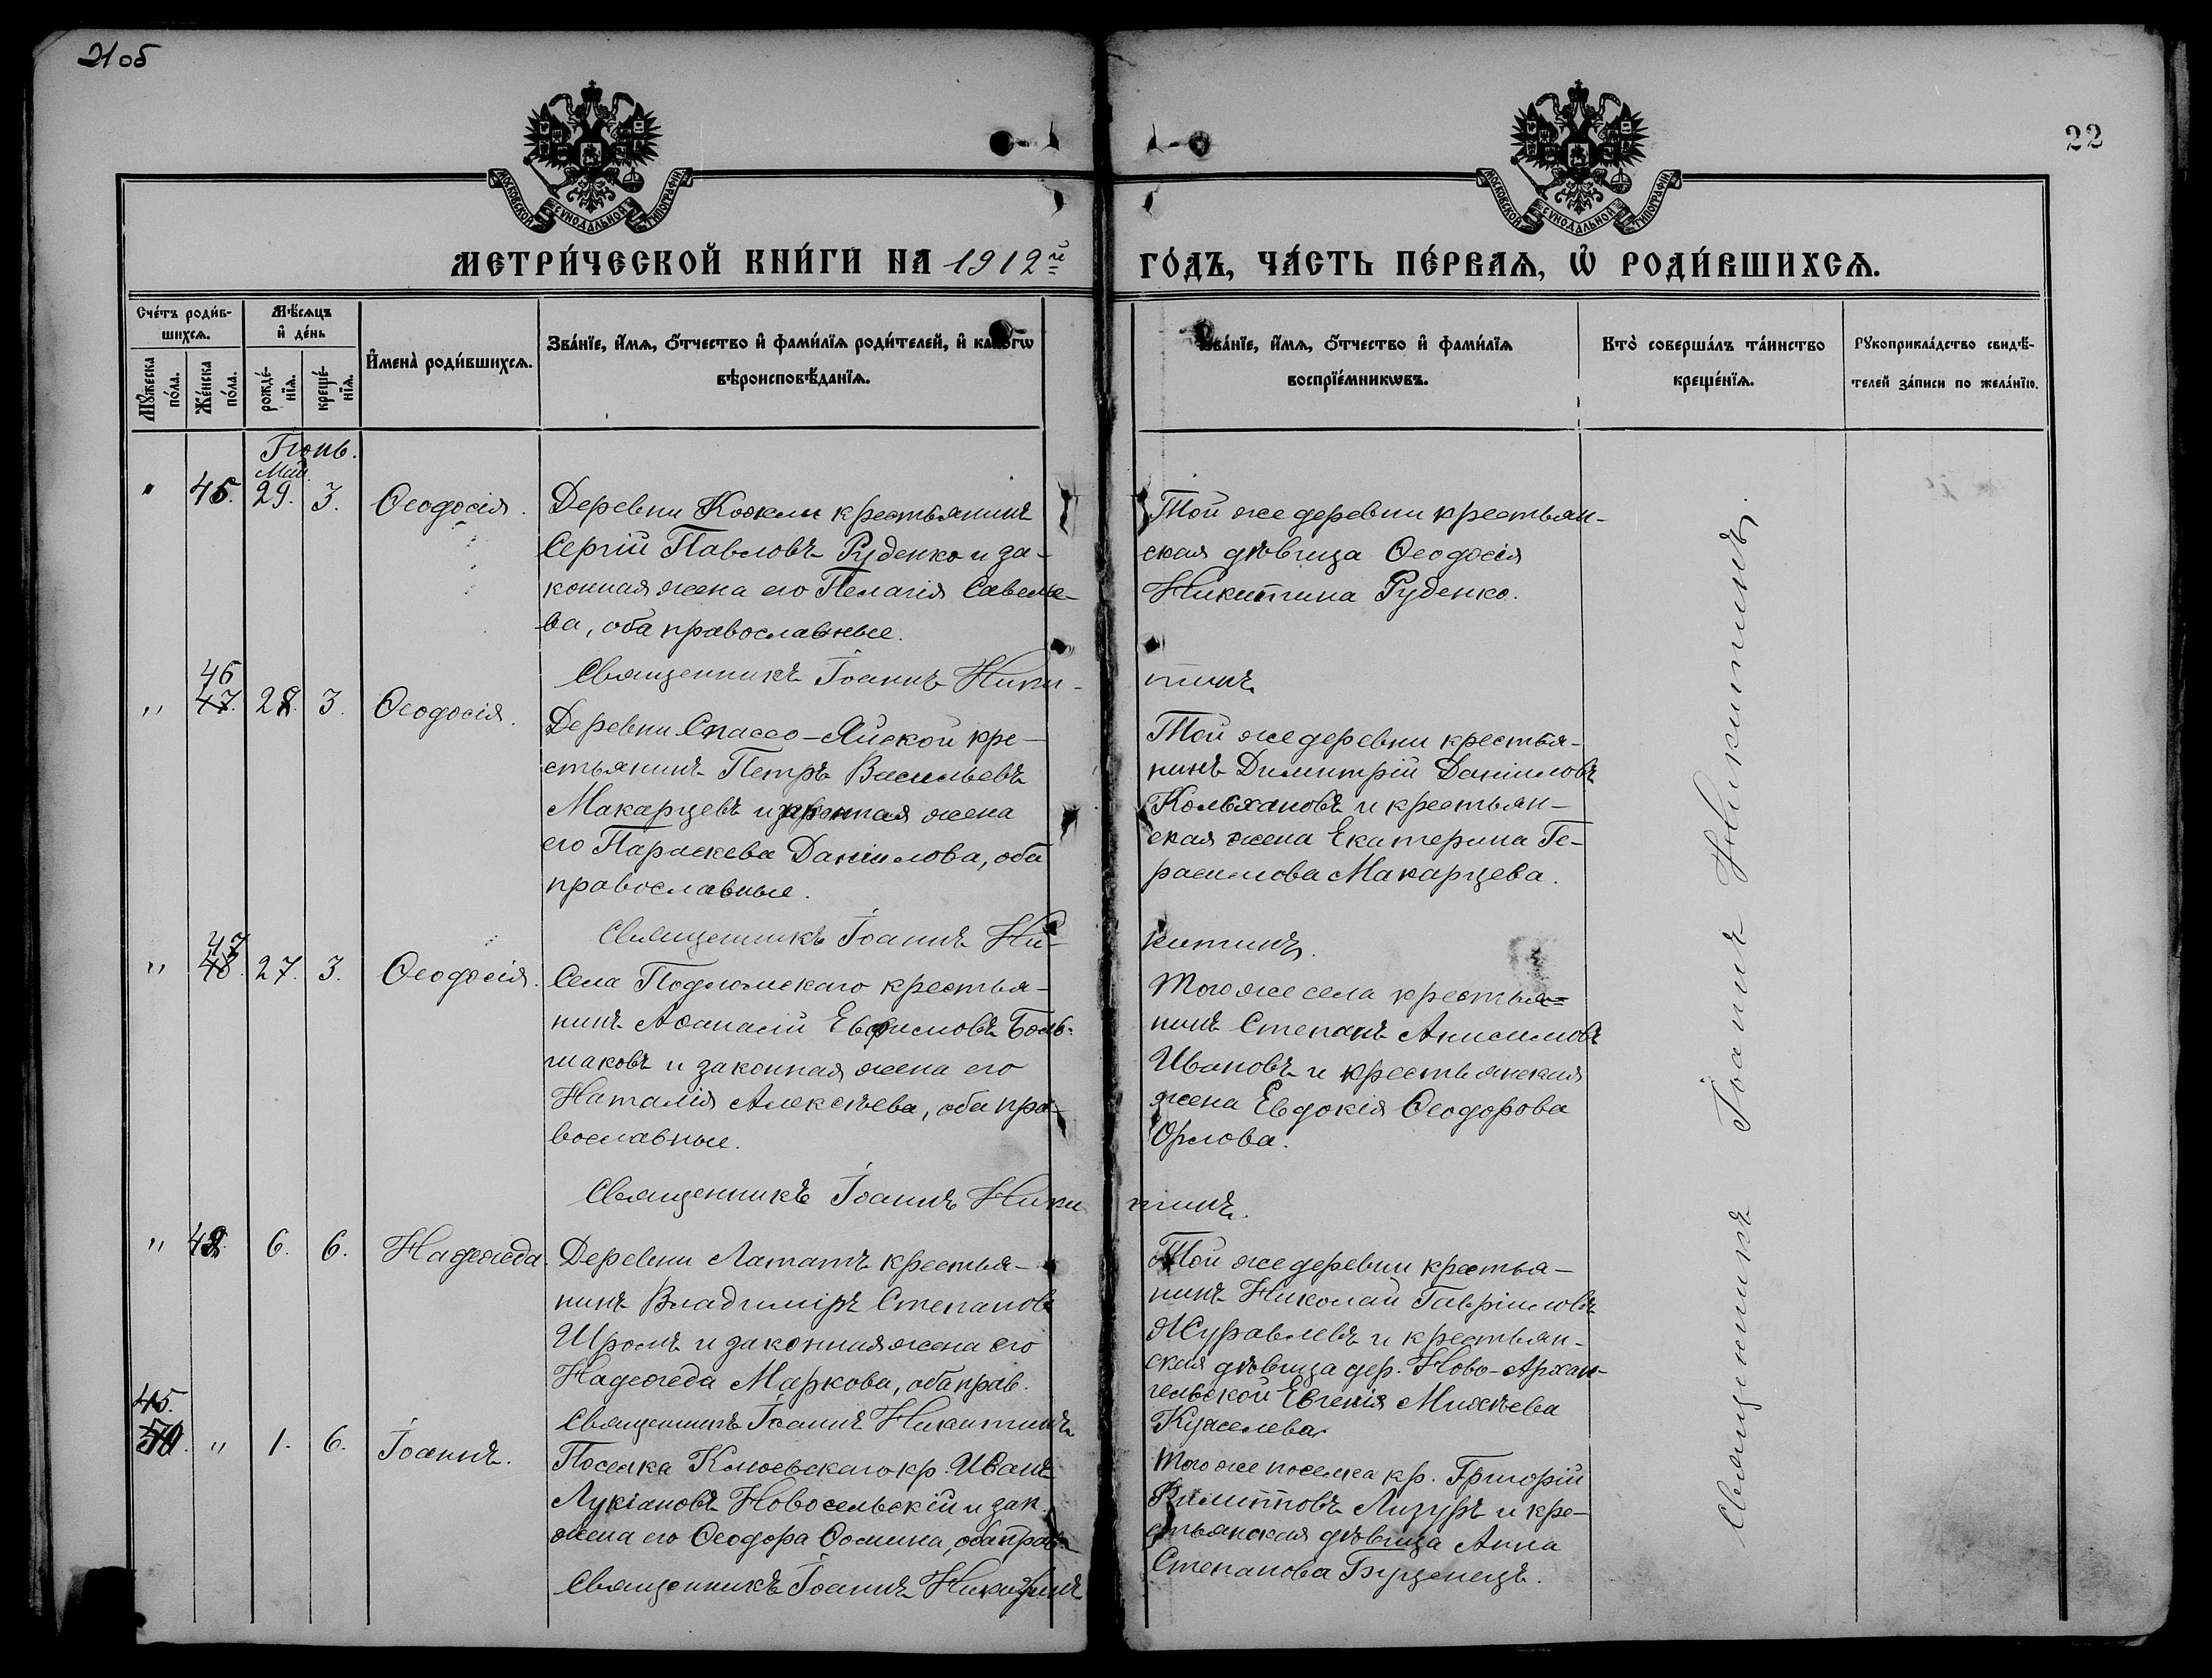 21 об
22
МОСКОВСКОЙ СѴНОДАЛЬНОЙ ТИПОГРАФІИ
МОСКОВСКОЙ СѴНОДАЛЬНОЙ ТИПОГРАФІИ
МЕТРИ́ЧЕСКОЙ КНИ́ГИ НА 1912й ГО́ДЪ, ЧА́СТЬ ПЕ́РВАѦ, Ѡ РОДИ́ВШИХСѦ.
Сче́тъ роди́в-
шихсѧ.
Мꙋ́жеска по́ла.
Же́нска по́ла.
Мѣ́сѧцъ
и҆ де́нь
рожде́-
нїѧ.
креще́-
нїѧ.
И҆мена̀ роди́вшихсѧ.
Зва́нїе, и҆́мѧ, ѻ҆́тчество и҆ фами́лїѧ роди́телей, и҆ како́гѡ
вѣроисповѣ́данїѧ.
Зва́нїе, и҆́мѧ, ѻ҆́тчество и҆ фами́лїѧ
воспрїе́мникѡвъ.
Кто̀ соверша́лъ та́инство
креще́нїѧ.
Рꙋкоприкла́дство свидѣ́-
телей за́писи по жела́нїю.
Іюнь.
Май.
" 45. 29. 3. Ѳеодосія.
Деревни Кожлы крестьянинъ
Сергій Павловъ Руденко и за-
конная жена его Пелагія Савелье-
ва, оба православные.
Той же деревни крестьян-
ская дѣвица Ѳеодосія
Никитина Руденко.
Священникъ Іоаннъ Ники-
тинъ.
46
" 47. 28. 3. Ѳеодосія.
Деревни Спассо-Яйской кре-
стьянинъ Петръ Васильевъ
Макарцевъ и законная жена
его Параскева Даніилова, оба
православные.
Той же деревни крестья-
нинъ Димитрій Даніиловъ
Колыхановъ и крестьян-
ская жена Екатерина Ге-
расимова Макарцева.
Священникъ Іоаннъ Ни-
китинъ.
47
" 48. 27. 3. Ѳеодосія.
Села Подломскаго крестья-
нинъ Аѳанасій Евфимовъ Боль-
шаковъ и законная жена его
Наталія Алексѣева, оба пра-
вославные.
Того же села крестья-
нинъ Степанъ Анисимовъ
Ивановъ и крестьянская
жена Евдокія Ѳеодорова
Орлова.
Священникъ Іоаннъ Ники
тинъ.
" 48. 6. 6. Надежда.
Деревни Лататъ крестья-
нинъ Владиміръ Степановъ
Шромъ и законная жена его
Надежда Маркова, оба прав.
Священникъ Іоаннъ Никитинъ
Той же деревни крестья-
нинъ Николай Гавріиловъ
Журавлевъ и крестьян-
ская дѣвица дер. Ново-Архан-
гельской Евгенія Михѣева
Кужелева.
45.
50. " 1. 6. Іоаннъ.
Поселка Клюевскаго кр. Иванъ
Лукіановъ Новосельскій и зак.
жена его Ѳеодора Ѳомина, оба прав.
Священникъ Іоаннъ Никитинъ
Того же поселка кр. Григорій
Филипповъ Лизуръ и кре-
стьянская дѣвица Анна
Степанова Бурденецъ.
Священникъ Іоаннъ Никитинъ